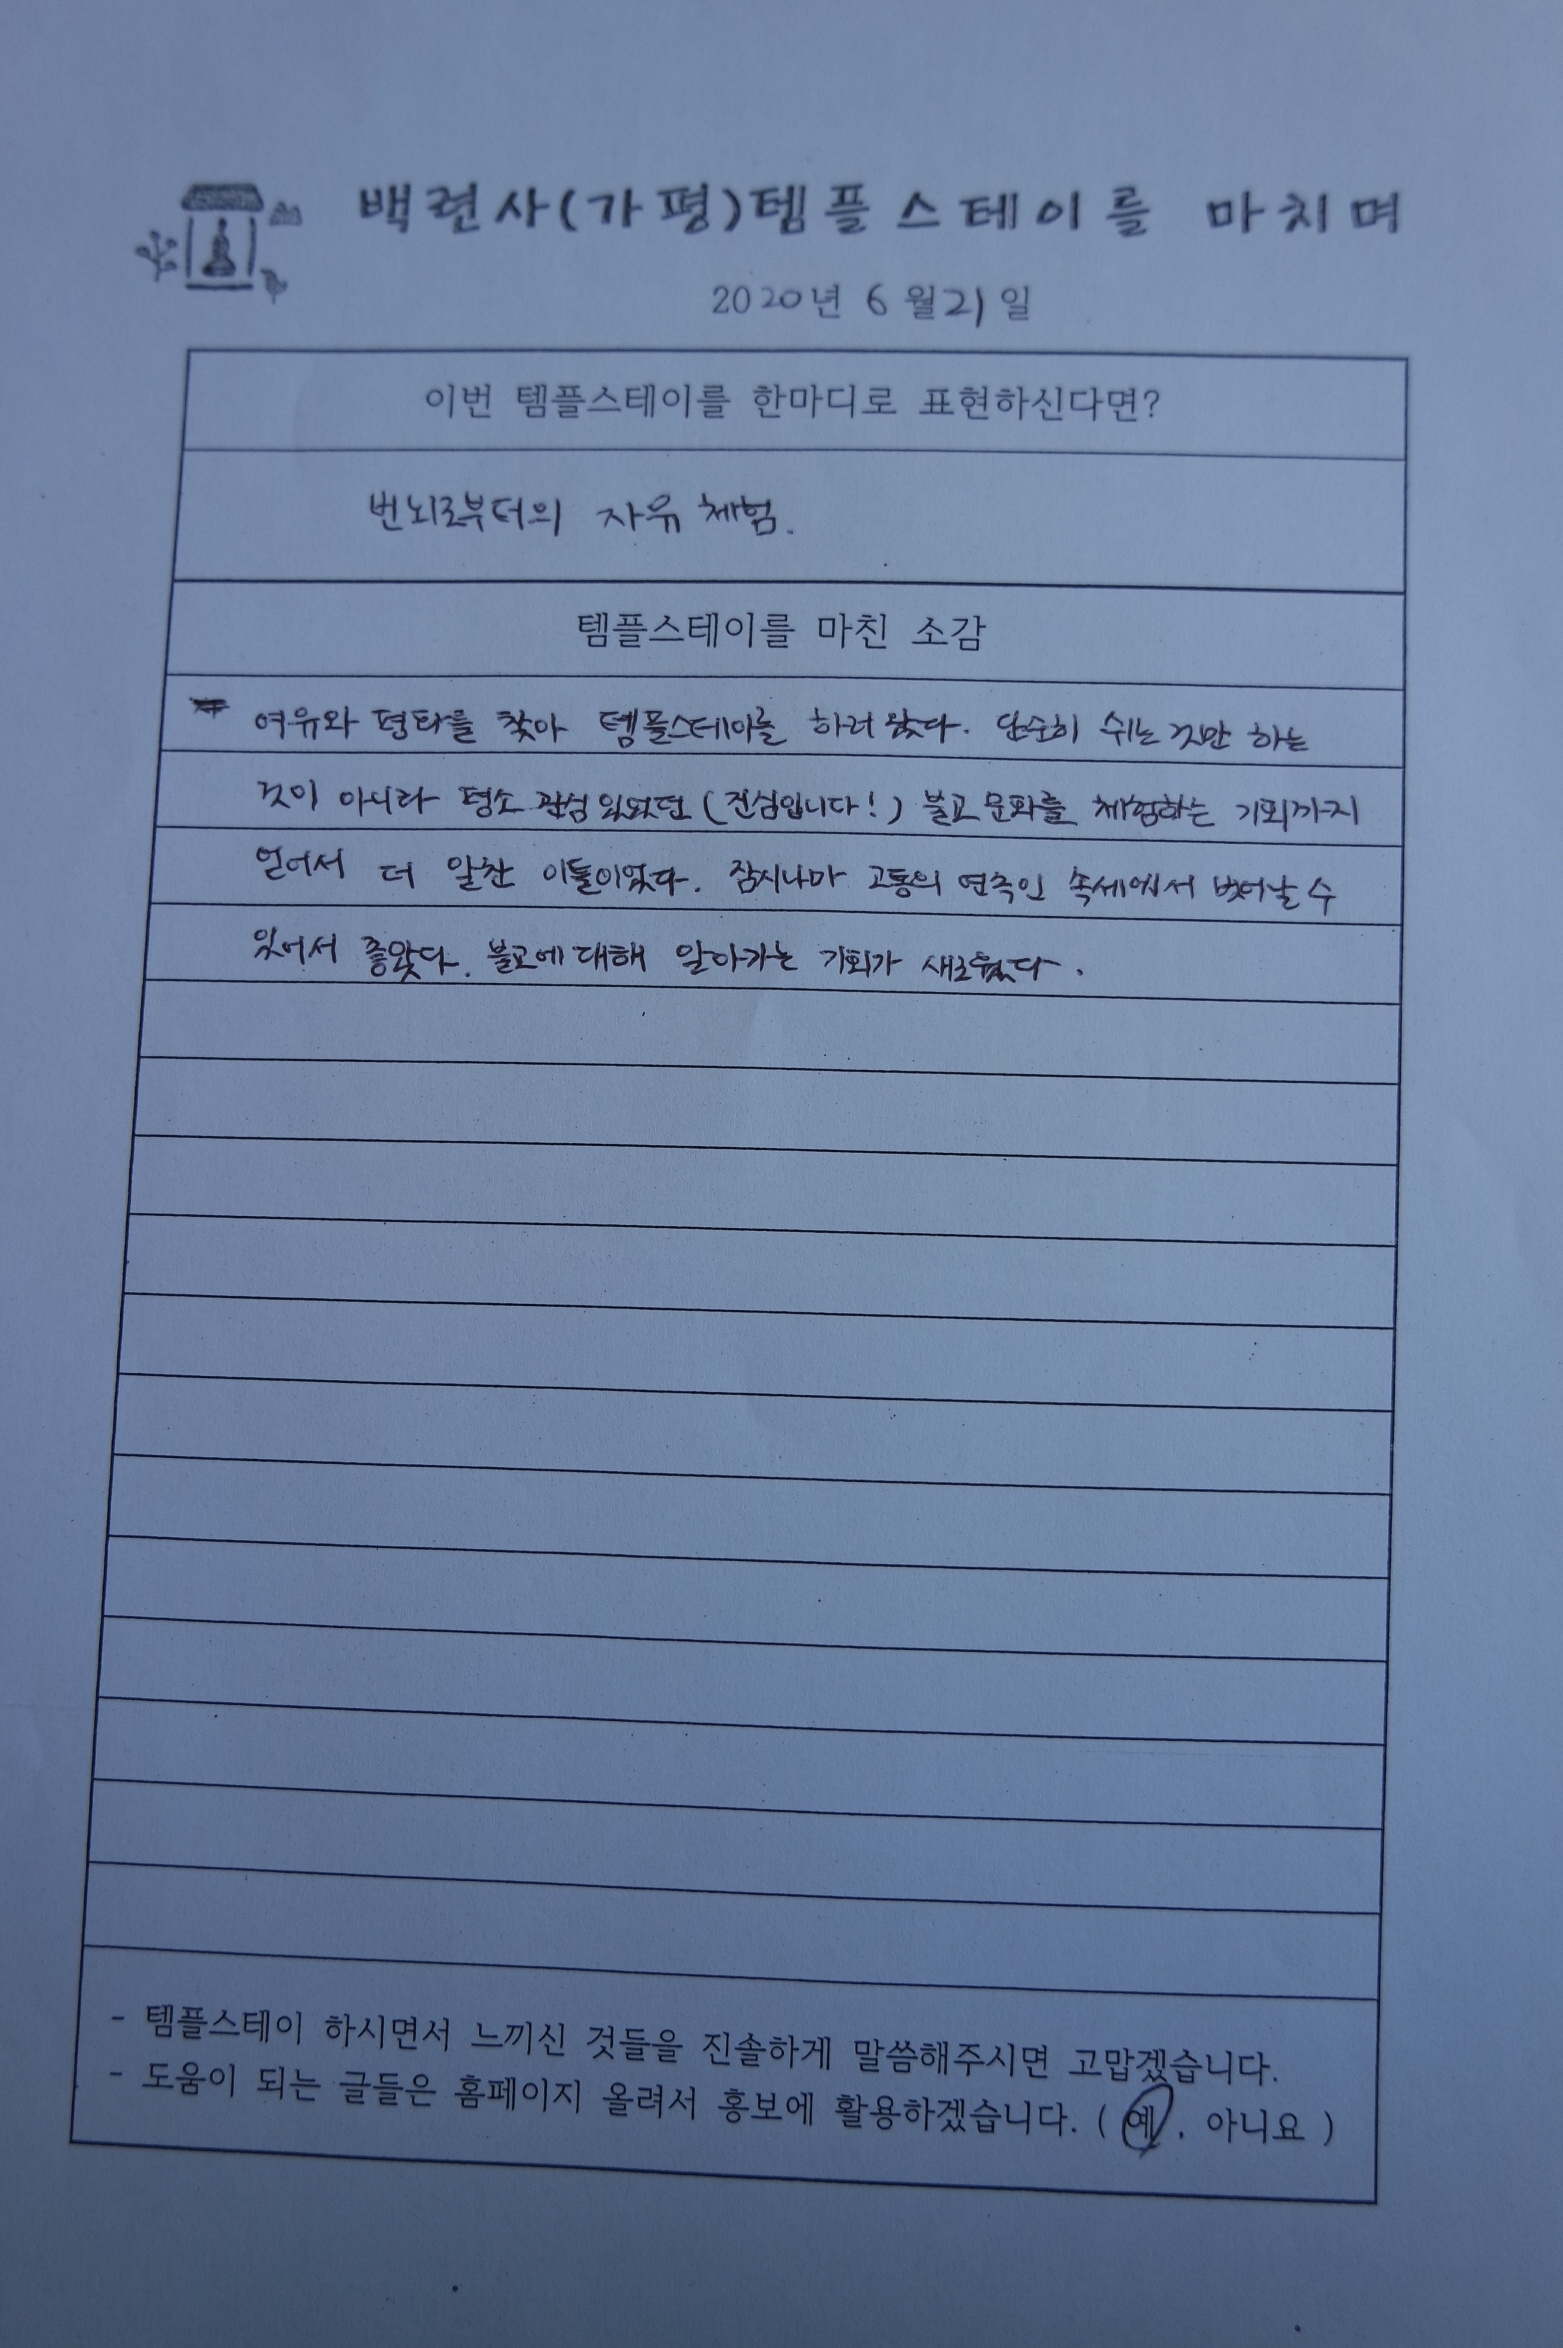 백련사(가평)템플스테이를 마치며
2020년 6월21일
이번 템플스테이를 한마디로 표현하신다면?
번뇌로부터의 자유 체험.
템플스테이를 마친 소감
여유와 평화를 찾아 템플스테이를 하러 왔다. 단순히 쉬는 것만 하는
것이 아니라 평소 관심 있었던 (진심입니다!) 불교 문화를 체험하는 기회까지
얻어서 더 알찬 이틀이었다. 잠시나마 고통의 연속인 속세에서 벗어날 수
있어서 좋았다. 불교에 대해 알아가는 기회가 새로웠다.
- 템플스테이 하시면서 느끼신 것들을 진솔하게 말씀해주시면 고맙겠습니다.
- 도움이 되는 글들은 홈페이지 올려서 홍보에 활용하겠습니다. ( 예 . 아니요 )